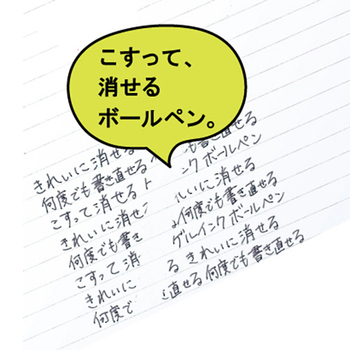 こすって、
消せる
ボールペン。
も書き直せる
きれいに消せる
ンク ボールペン
何度でも書き直せる
いに消せる
こすって 消せる
何度でも書き直せる
きれいに消せ
ゲルインク ボールペン
何度でも書き
る きれいに消せる
こすって 消
直せる 何度でも書き直せる
きれいに
何度で